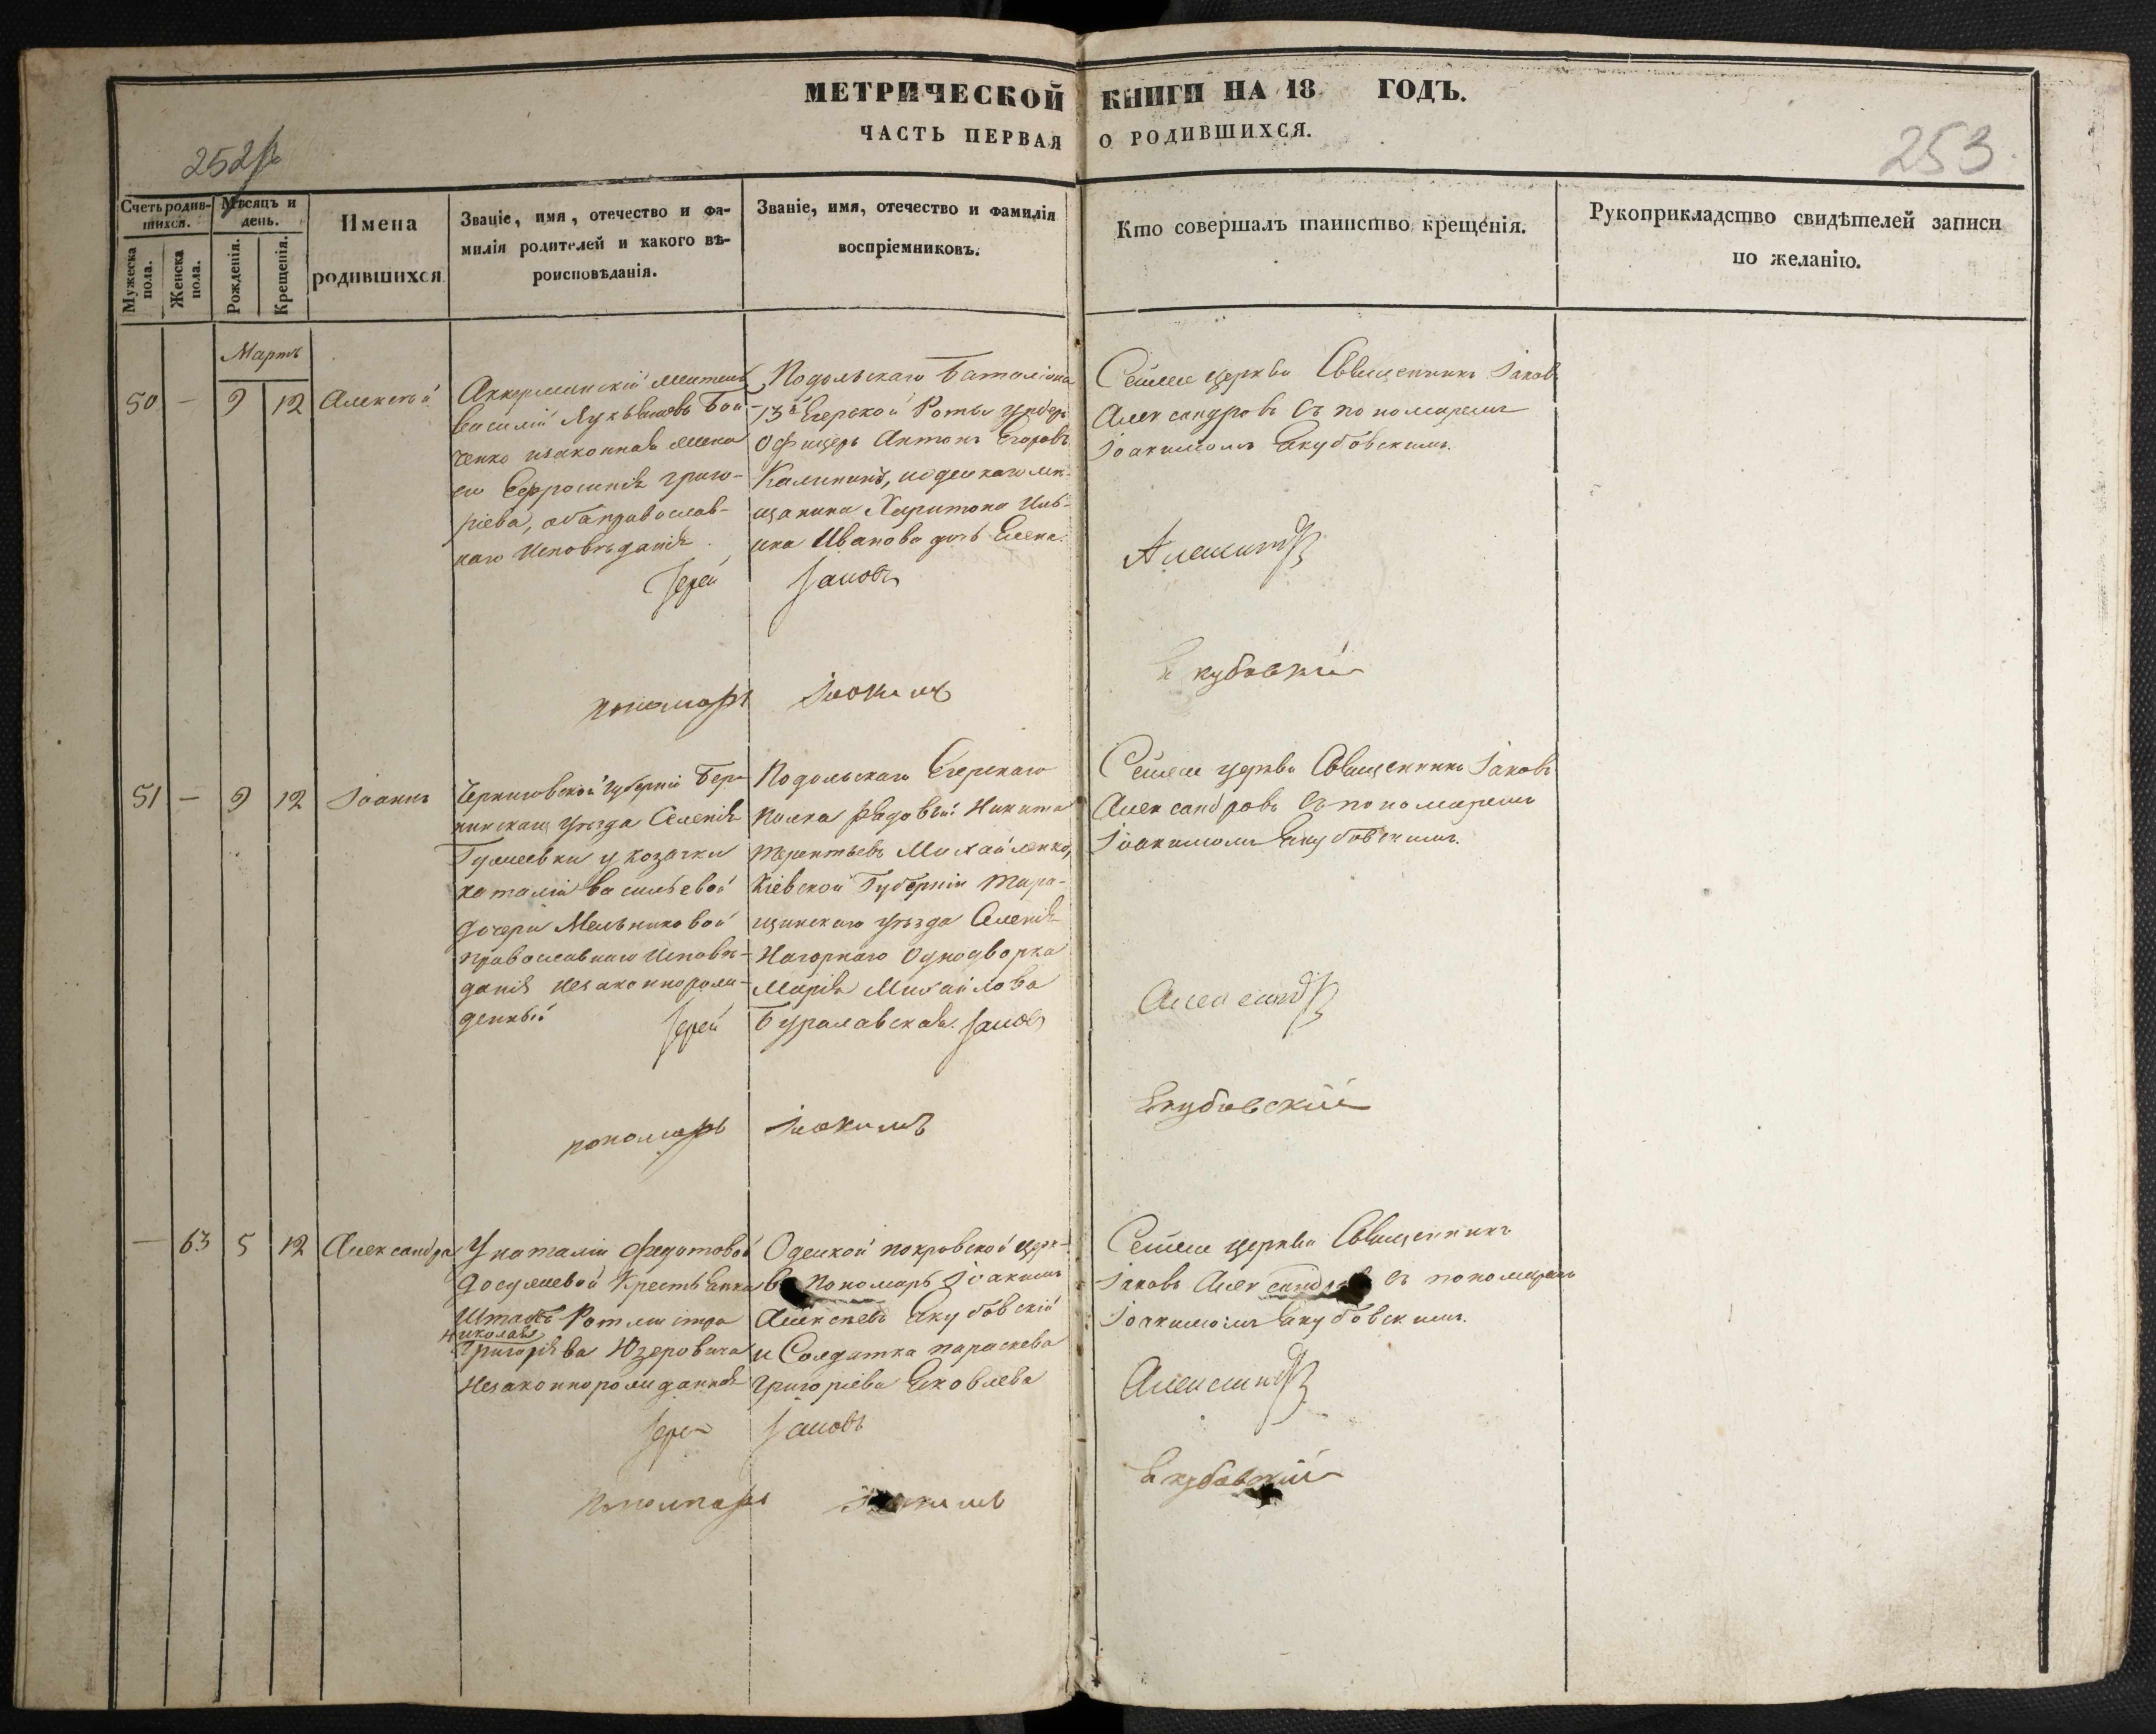 МЕТРИЧЕСКОЙ КНИГИ НА 18 ГОДЪ.
ЧАСТЬ ПЕРВАЯ О РОДИВШИХСЯ.
252
253
Счетъ родив-
шихся.
Мужеска
пола.
Женска
пола.
Мѣсяцъ и
день.
Рожденія.
Крещенія.
Имена
родившихся
Званіе, имя, отечество и фа-
милія родителей и какого вѣ-
роисповѣданія.
Званіе, имя, отечество и фамилія
воспріемниковъ.
Кто совершалъ таинство крещенія.
Рукоприкладство свидѣтелей записи
по желанію.
Мартъ
50 — 9 12 Алексѣй
Аккерманскій
Василій Лукьяновъ Бой-
ченко изаконная жена
его Ефросинія Григо-
ріева, оба православ-
наго Исповѣданія.
Подольскаго Баталіона
13й Егерской Роты Ундеръ
Офицеръ Антонъ Егоровъ
Калининъ, иодескаго мѣ-
щанина Харитона Иль-
ина Иванова дочь Елена.
Сейже церкви Священникъ Іаковъ
Александровъ съ пономаремъ
Іоакимомъ Якубовскимъ.
Іерей Іаковъ Александр
пономарь Іоакимъ Якубовскій
51 — 9 12 Іоаннъ
Черниговской Губерніи Бер-
зинскаго уѣзда Селенія
у козачки
Наталіи Васильевой
дочери Мельниковой
православнаго Исповѣ-
данія незаконнорож-
денный
Подольскаго Егерскаго
Полка Рядовый Никита
Терентьевъ Михайленко,
Кіевской Губерніи Тара-
щинскаго уѣзда Селенія
Нагорнаго Однодворка
Марія Михайлова
Сейже церкви Священникъ Іаковъ
Александровъ съ пономаремъ
Іоакимомъ Якубовскимъ.
Іерей Іаковъ Александр
пономарь Іоакимъ Якубовскій
— 63 5 12 Александра
У Наталіи Федотовой
Крестьянки
Штабъ-Ротмистра
Николая
Григорьева Юзеровича
Незаконнорожданная
Одеской покровской церк-
ви Пономарь Іоакимъ
Алексѣевъ Якубовскій
и Солдатка параскева
Григоріева Яковлева
Сейже церкви Священникъ
Іаковъ Александровъ съ пономаремъ
Іоакимомъ Якубовскимъ.
Іерей Іаковъ Александр
Пономарь Іоакимъ Якубовскій